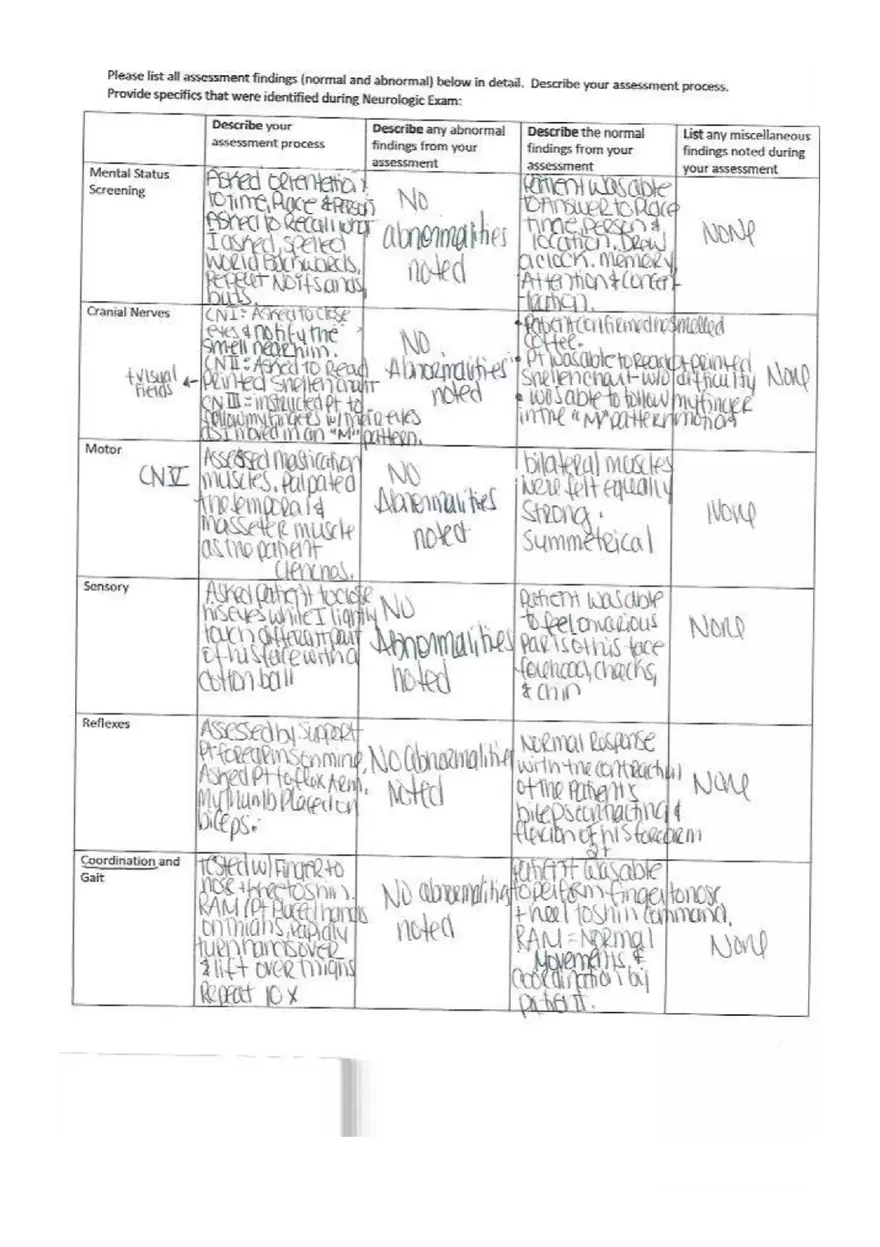 Please list all assessment findings (normal and abnormal) below in detail. Describe your assessment process.
Provide specifics that were identified during Neurologic Exam:
Describe your
assessment process
Describe any abnormal
findings from your
assessment
Describe the normal
findings from your
assessment
List any miscellaneous
findings noted during
your assessment
Mental Status
Screening
Asked orientation
to Time, Place & Person
Asked to Recall
I asked, spelled
World Backwards,
Repeat No ifs ands
buts.
No
abnormalities
noted
Patient was able
to Answer to Place
time, person &
location. Draw
a clock. memory
Attention & Concen-
tration.
None
Cranial Nerves
+ visual
fields
CN I: Asked to close
eyes & notify the
smell near him.
CN II: Asked to Read
printed Snellen chart
CN III: instructed pt to
follow my fingers w/ eyes
as I moved in an "M" pattern.
No
Abnormalities
noted
• Patient confirmed he smelled
coffee.
• Pt was able to Read printed
Snellen chart w/o difficulty
• was able to follow my finger
in the "M" pattern motion
None
Motor
CN V
Assessed mastication
muscles. Palpated
the temporal &
masseter muscle
as the patient
clenches.
No
Abnormalities
noted
bilateral muscles
were felt equally
Strong.
Summeterical
None
Sensory
Asked patient to close
his eyes while I lightly
touch different part
of his face with a
cotton ball
No
Abnormalities
noted
Patient was able
to feel on various
parts of his face
forehead, cheeks,
& chin
None
Reflexes
Assessed by support
Pt forearms on mine,
Asked Pt to flex Arm.
My thumb placed on
biceps.
No abnormalities
noted
Normal Response
with the contraction
of the patients
biceps contracting &
flexion of his forearm
2+
None
Coordination and
Gait
tested w/ Finger to
nose + heel to shin.
RAM (Pt placed hands
on thighs, rapidly
turn hands over
& lift over thighs
Repeat 10 x
No abnormalities
noted
Patient was able
to perform finger to nose
+ heel to shin command.
RAM = Normal
Movements &
coordination by
patient.
None